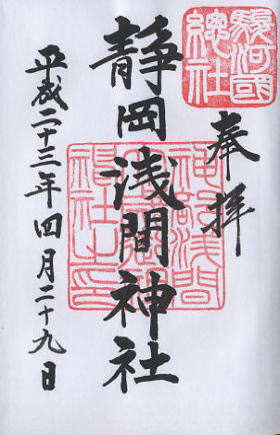 駿河國
總社
奉拝
静岡浅間神社
平成二十三年四月二十九日
神部浅間
神社之印